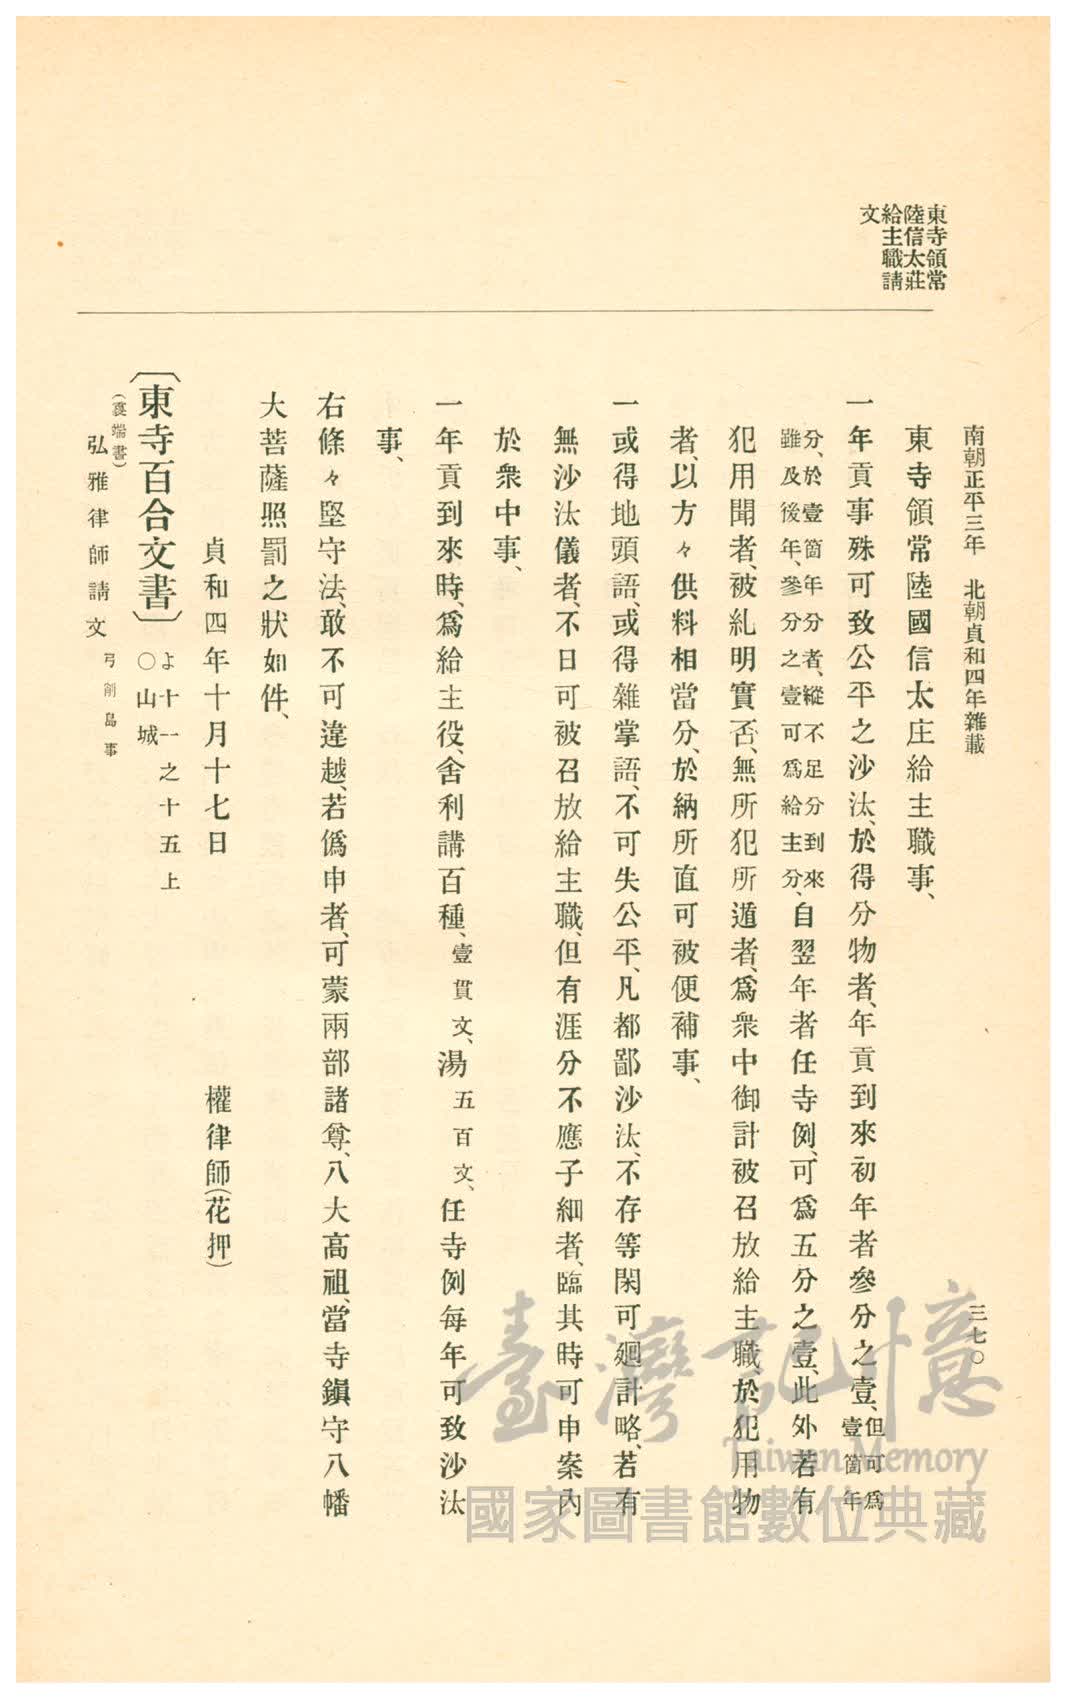 南朝正平三年　北朝貞和四年雜載
三七〇
東寺領常
陸信太莊
給主職請
文
東寺領常陸國信太庄給主職事、
一年貢事殊可致公平之沙汰、於得分物者、年貢到來初年者參分之壹、但可爲壹箇年
分、於壹箇年分者、縱不足分到來
雖及後年、參分之壹可爲給主分、自翌年者任寺例、可爲五分之壹、此外若有
犯用聞者、被糺明實否、無所犯所遁者、爲衆中御計被召放給主職於犯用物
者、以方々供料相當分、於納所直可被便補事、
一或得地頭語、或得雜掌語、不可失公平、凡都鄙沙汰、不存等閑可廻計略、若有
無沙汰儀者、不日可被召放給主職、但有涯分不應子細者、臨其時可申案內
於衆中事、
一年貢到來時、爲給主役、舍利講百種、壹貫文、湯五百文、任寺例每年可致沙汰
事、
右條々堅守法、敢不可違越、若僞申者、可蒙兩部諸尊、八大高祖、當寺鎭守八幡
大菩薩照罰之狀如件、
貞和四年十月十七日　權律師(花押)
〔東寺百合文書〕よ十一之十五上
〇山城
(裏端書)
弘雅律師請文　弓削島事
臺灣記憶
Taiwan Memory
國家圖書館數位典藏